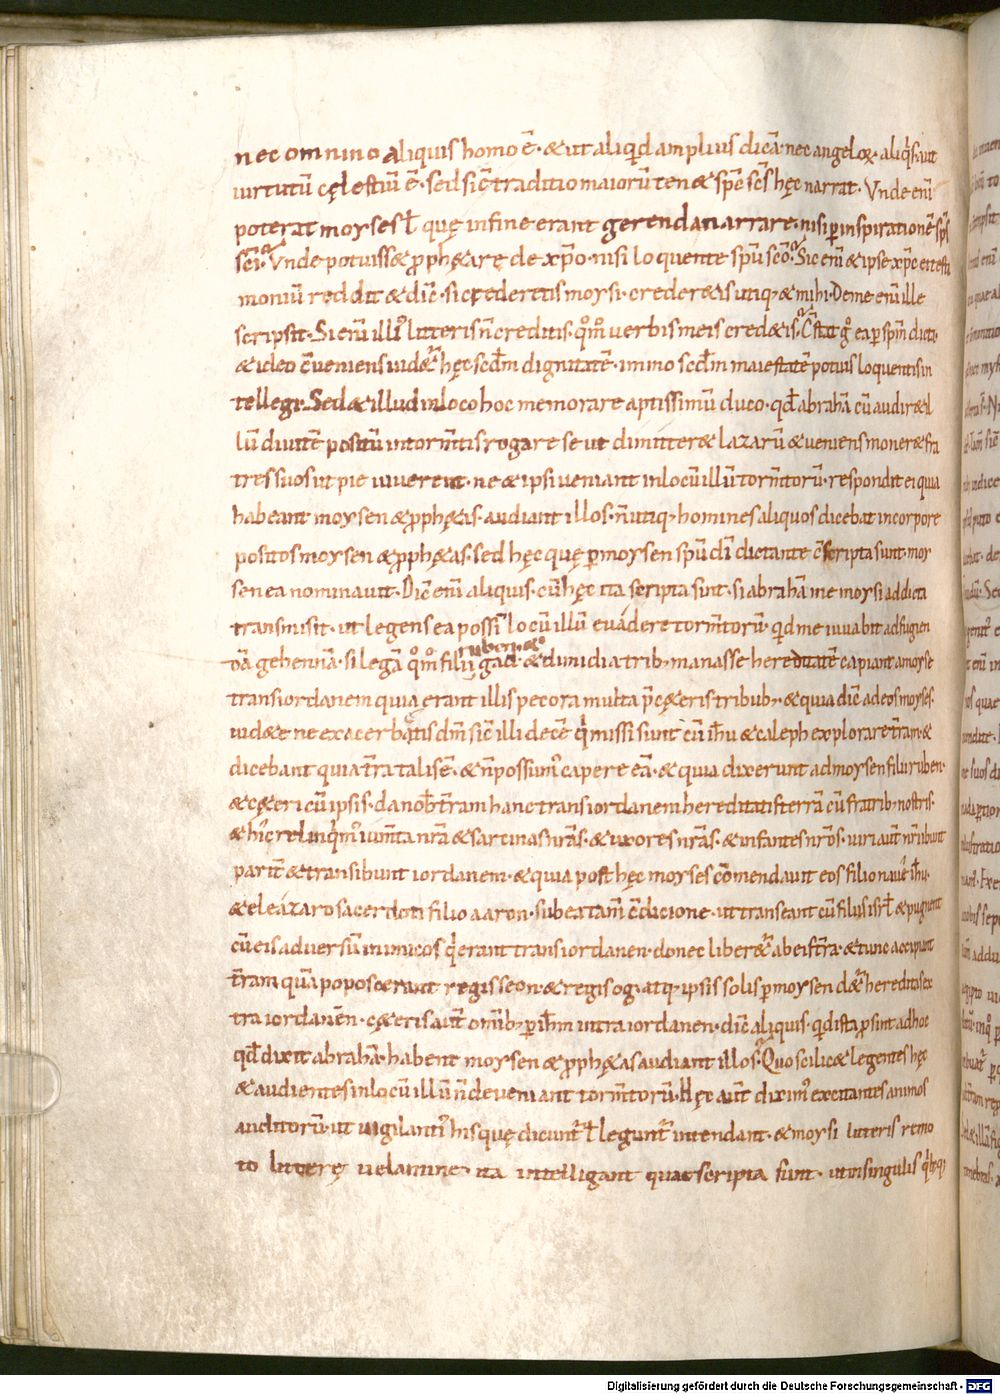 nec omnino aliquis homo ē· & ut aliqid amplius dicā· nec angeloꝝ· aliq͛s aut
uirtutū cęlestiū ē· sed sic̄ traditio maiorū ten& sp̄s sc̄s hęc narrat· Vnde eni͂
poterat moyses ł quę in fine erant gerenda narrare· nisi ꝑ inspirationē sp̄s
sc̄i· Vnde potuiss& ꝓph&are de xp̄o· nisi loquente sp̄u sc̄o· Sic eni͂ & ipse xp̄c ei testi
moniū reddit & dic̄· si crederetis moysi· creder&is utiq; & mihi· De me eni͂ ille
scripsit· Si eni͂ illi᾽ litteris n̄ creditis· qm̄o uerbis meis cred&is· C̄stat g͛ ea ꝑ spm̄ dicta·
& ideo c̄ueniens uid&͛ hęc scd̄m dignitatē· immo scd̄m maiestatē potius loquentis in
tellegi· Sed & illud in loco hoc memorare aptissimū duco· qđ abrahā cū audir& il
lū diuitē positū in torm̄tis rogare se ut dimitter& lazarū & ueniens moner& fra
tres suos ut pie uiuerent· ne & ipsi ueniant in locū illū torm̄torū· respondit ei quia
habeant moysen & ꝓph&as· audiant illos· n̄ utiq; homines aliquos dicebat in corpore
positos moysen & ꝓph&as· sed hęc quę ꝑ moysen spū dī dictante c̄scripta sunt· moy
sen ea nominauit· Dic̄ eni͂ aliquis· cū hęc ita scripta sint· si abrahā me moysi addicta
transmisit· ut legens ea possī locū illū euádere torm̄torū· qid me iuuabit ad fugien
dā gehennā· si legā qm̄o filii ruben & gad· & dimidia trib; manasse hereditatē capiant a moyse
trans iordanem quia erant illis pecora multa p̄ c&eris tribub;· & quia dic̄ ad eos moyses·
uid&e ne exacerbetis dm̄ sic̄ illi decē q͛ missi sunt cū ih̄u & caleph explorare t̄ram· &
dicebant quia t̄ra talis ē· & n̄ possum᾽ capere eā· & quia dixerunt ad moysen filii ruben·
& c&eri cū ipsis· da nob̄ t̄ram hanc trans iordanem hereditatis terrā cū fratrib; nostris·
& hic relinq͛m᾽ ium̄ta nr̄a & sarcinas nr̄as· & uxores nr̄as· & infantes nr̄os· uiri aut̄ nr̄i ibunt
parit̄ & transibunt iordanem· & quia post hęc moyses c̄mendauit eos filio naue ih̄u·
& eleázaro sacerdoti filio aaron· sub ea tam̄ c̄dicione· ut transeant cū filiis isrł & pugnent
cū eis aduersū inimicos q͛ erant trans iordanen· donec liber&͛ ab eis t̄ra· & tunc accipiunt
t̄ram quā poposcerunt regis seon· & regis og· atq; ipsis solis ꝑ moysen da&͛ hereditas ex
tra iordanēn· c&eris aut̄ omīb; ꝑ ih̄m intra iordanen· dic̄ aliquis· qid ista ꝓsint ad hoc
qđ dixit abrahā· habent moysen & ꝓph&as audiant illos· Quo scilic& legentes hęc
& audientes in locū illū n̄ deueniant torm̄torū· Hęc aut̄ dixim᾽ excitantes animos
auditorū· ut uigilanti᾽ his quę dicunt͛ ł legunt͛ intendant· & moysi litteris remo
to litterę uelamine· ita intelligant quae scripta sunt· ut in singulis q͛busq;
Digitalisierung gefördert durch die Deutsche Forschungsgemeinschaft - DFG